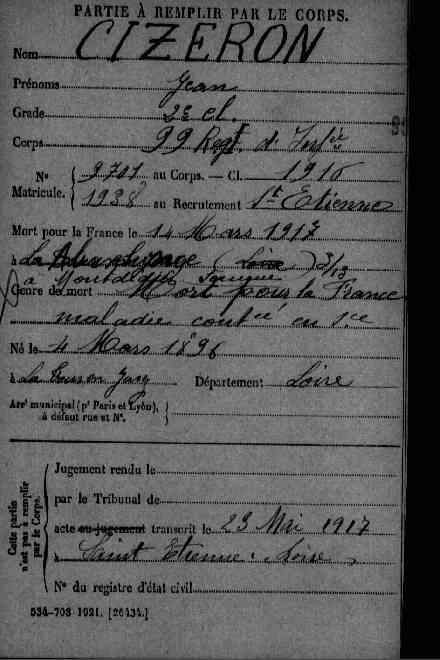 PARTIE À REMPLIR PAR LE CORPS.
Nom CIZERON
Prénoms Jean
Grade 2e cl.
Corps 99 Regt d'Infie
Nº 9701 au Corps. — Cl. 1916
Matricule. 1938 au Recrutement St Etienne
Mort pour la France le 14 Mars 1917
à La (Loire)
à Montdidier Somme
Genre de mort Mort pour la France
maladie contée en sce
Né le 4 Mars 1896
à La Jarez Département Loire
Arrt municipal (pr Paris et Lyon),
à défaut rue et Nº.
Cette partie
n'est pas à remplir
par le Corps.
Jugement rendu le
par le Tribunal de
acte ou jugement transcrit le 23 Mai 1917
à Saint Etienne. Loire
Nº du registre d'état civil
534-708 1921. [26434.]